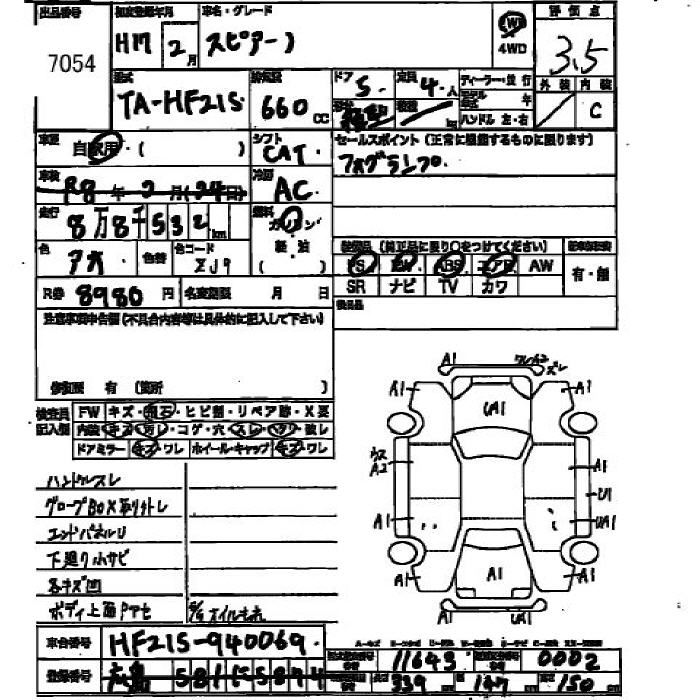 出品番号
7054
初度登録年月
H17 2月
車名・グレード
スピアーノ
4WD
評価点
3.5
外装 内装
C
型式
TA-HF21S
排気量
660 CC
ドア
5
定員
4人
ディーラー・並行
モデル年式 年
ハンドル 左・右
車歴
自家用・( )
シフト
CAT
セールスポイント (正常に機能するものに限ります)
フォグランプ
車検
R8年2月(24日)
冷房
AC
走行
8万8千532km
燃料
ガソリン
軽油
( )
色
アオ
色替
色コード
ZJ9
装備品 (純正品に限り○をつけてください)
PS PW ABS エアB AW
SR ナビ TV カワ
有・無
R券 8980円
名変期限 月 日
後日品
注意事項申告欄 (不具合内容等は具体的に記入して下さい)
修復歴 有 (箇所 )
検査員記入欄
FW キズ・飛石・ヒビ割・リペア跡・X要
内装 キズ・汚レ・コゲ・穴・スレ・ヘタリ・破レ
ドアミラー キズ・ワレ ホイール・キャップ キズ・ワレ
ハンドルスレ
グローブBOX取り外レ
エンドパネルU
下廻り小サビ
各キズ凹
ボディ上面
オイルもれ
A1
A2
ズレ
A1
A1
UA1
ウス
A2
A1
U1
A1
UA1
A1
A1
A1
A1
UA1
車台番号
HF21S-940069
登録番号
広島 581 5874
型式指定番号
11643
類別区分番号
0002
長さ 339cm
幅 147cm
高さ 150cm